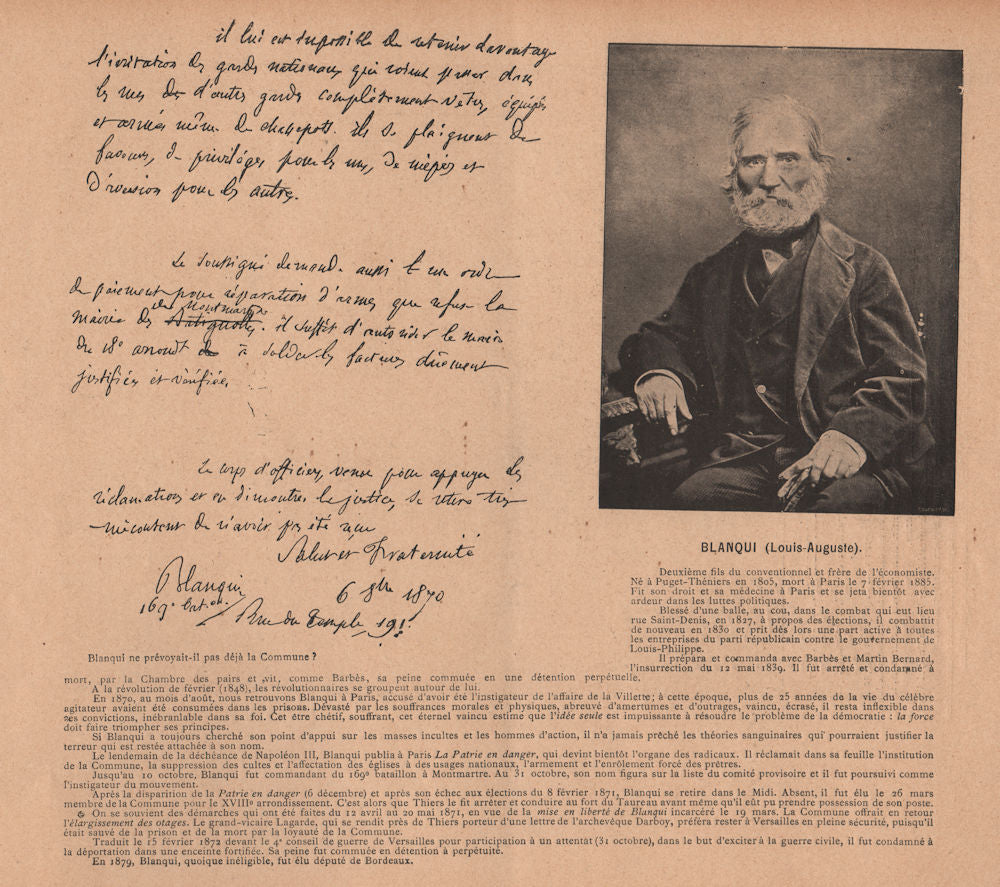 il lui est impossible de retenir davantage
l'irritation des gardes nationaux qui voient passer dans
les rues des d'autres gardes complètement vêtus, équipés
et armés même de chassepots. ils se plaignent de
faveurs, de privilèges pour les uns, de mépris et
d'aversion pour les autres.
Le soussigné demande aussi un ordre
de paiement pour réparation d'armes que refuse la
de Montmartre
mairie des Batignolles. il suffit d'autoriser le maire
du 18e arrondt à solder les factures dûement
justifiées et vérifiées.
Le corps d'officiers, venu pour appuyer les
réclamations et en démontrer la justice, se retire très
mécontent de n'avoir pas été reçu
Salut et Fraternité
Blanqui 6 8bre 1870
169e bataon. Rue du Temple 191.
Blanqui ne prévoyait-il pas déjà la Commune ?
BLANQUI (Louis-Auguste).
Deuxième fils du conventionnel et frère de l'économiste.
Né à Puget-Théniers en 1805, mort à Paris le 7 février 1885.
Fit son droit et sa médecine à Paris et se jeta bientôt avec
ardeur dans les luttes politiques.
Blessé d'une balle, au cou, dans le combat qui eut lieu
rue Saint-Denis, en 1827, à propos des élections, il combattit
de nouveau en 1830 et prit dès lors une part active à toutes
les entreprises du parti républicain contre le gouvernement de
Louis-Philippe.
Il prépara et commanda avec Barbès et Martin Bernard,
l'insurrection du 12 mai 1839. Il fut arrêté et condamné à
mort, par la Chambre des pairs et vit, comme Barbès, sa peine commuée en une détention perpétuelle.
A la révolution de février (1848), les révolutionnaires se groupent autour de lui.
En 1870, au mois d'août, nous retrouvons Blanqui à Paris, accusé d'avoir été l'instigateur de l'affaire de la Villette ; à cette époque, plus de 25 années de la vie du célèbre
agitateur avaient été consumées dans les prisons. Dévasté par les souffrances morales et physiques, abreuvé d'amertumes et d'outrages, vaincu, écrasé, il resta inflexible dans
ses convictions, inébranlable dans sa foi. Cet être chétif, souffrant, cet éternel vaincu estime que l'idée seule est impuissante à résoudre le problème de la démocratie : la force
doit faire triompher ses principes.
Si Blanqui a toujours cherché son point d'appui sur les masses incultes et les hommes d'action, il n'a jamais prêché les théories sanguinaires qui pourraient justifier la
terreur qui est restée attachée à son nom.
Le lendemain de la déchéance de Napoléon III, Blanqui publia à Paris La Patrie en danger, qui devint bientôt l'organe des radicaux. Il réclamait dans sa feuille l'institution
de la Commune, la suppression des cultes et l'affectation des églises à des usages nationaux, l'armement et l'enrôlement forcé des prêtres.
Jusqu'au 10 octobre, Blanqui fut commandant du 169e bataillon à Montmartre. Au 31 octobre, son nom figura sur la liste du comité provisoire et il fut poursuivi comme
l'instigateur du mouvement.
Après la disparition de la Patrie en danger (6 décembre) et après son échec aux élections du 8 février 1871, Blanqui se retire dans le Midi. Absent, il fut élu le 26 mars
membre de la Commune pour le XVIIIe arrondissement. C'est alors que Thiers le fit arrêter et conduire au fort du Taureau avant même qu'il eût pu prendre possession de son poste.
On se souvient des démarches qui ont été faites du 12 avril au 20 mai 1871, en vue de la mise en liberté de Blanqui incarcéré le 19 mars. La Commune offrait en retour
l'élargissement des otages. Le grand-vicaire Lagarde, qui se rendit près de Thiers porteur d'une lettre de l'archevêque Darboy, préféra rester à Versailles en pleine sécurité, puisqu'il
était sauvé de la prison et de la mort par la loyauté de la Commune.
Traduit le 15 février 1872 devant le 4e conseil de guerre de Versailles pour participation à un attentat (31 octobre), dans le but d'exciter à la guerre civile, il fut condamné à
la déportation dans une enceinte fortifiée. Sa peine fut commuée en détention à perpétuité.
En 1879, Blanqui, quoique inéligible, fut élu député de Bordeaux.